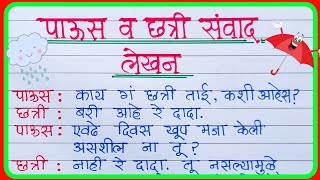 पाऊस व छत्री संवाद
लेखन
पाऊस : काय गं छत्री ताई, कशी आहेस?
छत्री : बरी आहे रे दादा.
पाऊस : एवढे दिवस खूप मजा केली
असशील ना तू ?
छत्री : नाही रे दादा. तू नसल्यामुळे